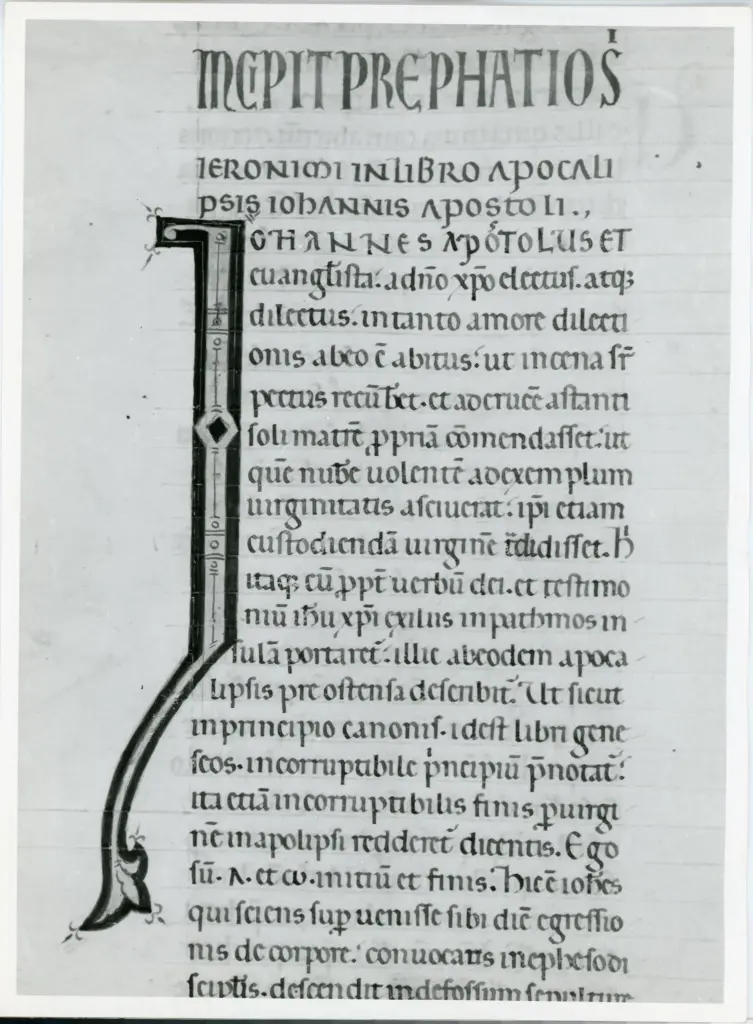 INCIPIT PREPHATIO S̄I
IERONIMI IN LIBRO APOCALI
PSIS IOhANNIS APOSTOLI .,
IOHANNES APOSTOLUS ET
euangl̄ista. a dn̄o xp̄o electus. atq;
dilectus. in tanto amore dilecti
onis ab eo ē abitus. ut in cena sr̄
pectus recūb̄et. et ad crucē astanti
soli matrē ꝓpriā cōmendasset. ut
quē nub̄e uolentē ad exemplum
uirginitatis asciuerat. ip̄i etiam
custodiendā uirginē tdidisset. h
itaq; cū ꝓpt̄ uerbū dei. et testimo
niū ih̄u xp̄i exilus in pathmos in
sulā portaret̄. illic ab eodem apoca
lipsis pre ostensa describit̄. Ut sicut
in principio canonis. id est libri gene
seos. incorruptibile pͥncipiū p̄notat̄.
ita etiā incorruptibilis finis ꝑ uirgi
nē in apolipsi redderet̄ dicentis. Ego
sū. A. et ω. initiū et finis. hic ē ioh̄es
qui sciens suꝑ uenisse sibi diē egressio
nis de corpore. conuocatis in epheso di
sciptis. descendit in defossum sepulture